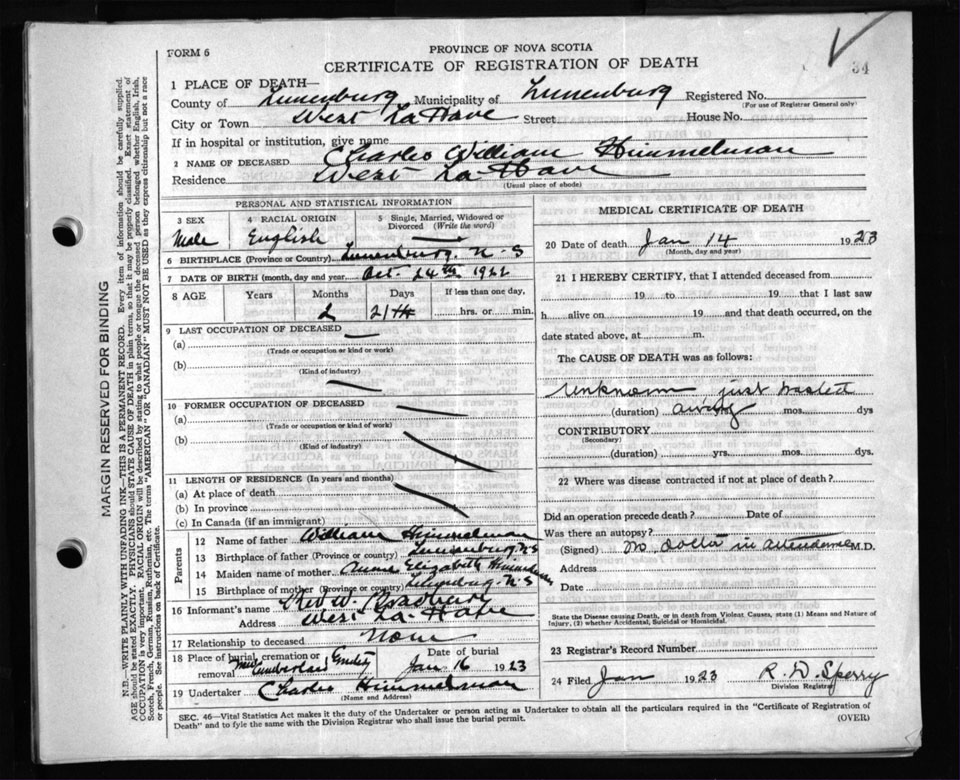 FORM 6
PROVINCE OF NOVA SCOTIA
CERTIFICATE OF REGISTRATION OF DEATH
34
1 PLACE OF DEATH—
County of Lunenburg Municipality of Lunenburg Registered No.
(For use of Registrar General only)
City or Town West LaHave Street House No.
If in hospital or institution, give name
2 NAME OF DECEASED Charles William Himmelman
Residence West La-Have
(Usual place of abode)
PERSONAL AND STATISTICAL INFORMATION
3 SEX Male
4 RACIAL ORIGIN English
5 Single, Married, Widowed or Divorced (Write the word)
6 BIRTHPLACE (Province or Country) Lunenburg. N-S
7 DATE OF BIRTH (month, day and year) Oct. 24th 1922
8 AGE Years Months Days If less than one day,
2 21 hrs. or min.
9 LAST OCCUPATION OF DECEASED
(a)
(Trade or occupation or kind or work)
(b)
(Kind of industry)
10 FORMER OCCUPATION OF DECEASED
(a)
(Trade or occupation or kind of work)
(b)
(Kind of industry)
11 LENGTH OF RESIDENCE (In years and months)
(a) At place of death
(b) In province
(c) In Canada (if an immigrant)
Parents
12 Name of father William Himmelman
13 Birthplace of father (Province or country) Lunenburg N-S
14 Maiden name of mother Elizabeth Himmelman
15 Birthplace of mother (Province or country) Lunenburg N-S
16 Informant's name
Address West La-Have
17 Relationship to deceased None
18 Place of burial, cremation or removal Cumberland Date of burial Jan 16 1923
19 Undertaker Charles Himmelman
(Name and Address)
MEDICAL CERTIFICATE OF DEATH
20 Date of death Jan 14 1923
(Month, day and year)
21 I HEREBY CERTIFY, that I attended deceased from
19 to 19 that I last saw
h alive on 19 and that death occurred, on
date stated above, at m.
The CAUSE OF DEATH was as follows:
Unknown just wasted
(duration) away mos. dys
CONTRIBUTORY
(Secondary)
(duration) yrs. mos. dys.
22 Where was disease contracted if not at place of death?
Did an operation precede death? Date of
Was there an autopsy?
(Signed) in attendance M.D.
Address
Date
State the Disease causing Death, or in death from Violent Causes, state (1) Means and Nature of
Injury, (2) whether Accidental, Suicidal or Homicidal.
23 Registrar's Record Number
24 Filed Jan 1923 R. D. Sperry
Division Registrar
SEC. 46—Vital Statistics Act makes it the duty of the Undertaker or person acting as Undertaker to obtain all the particulars required in the "Certificate of Registration of
Death" and to fyle the same with the Division Registrar who shall issue the burial permit.
(OVER)
MARGIN RESERVED FOR BINDING
N.B.—WRITE PLAINLY WITH UNFADING INK—THIS IS A PERMANENT RECORD. Every item of information should be carefully supplied.
AGE should be stated EXACTLY. PHYSICIANS should STATE CAUSE OF DEATH in plain terms, so that it may be properly classified. Exact statement of
OCCUPATION is very important. RACIAL ORIGIN will be described by stating to what people or tongue the deceased person belonged whether English, Irish,
Scotch, French, German, Russian, Ruthenian, etc. The terms "AMERICAN" OR "CANADIAN" MUST NOT BE USED as they express citizenship but not a race
or people. See instructions on back of Certificate.